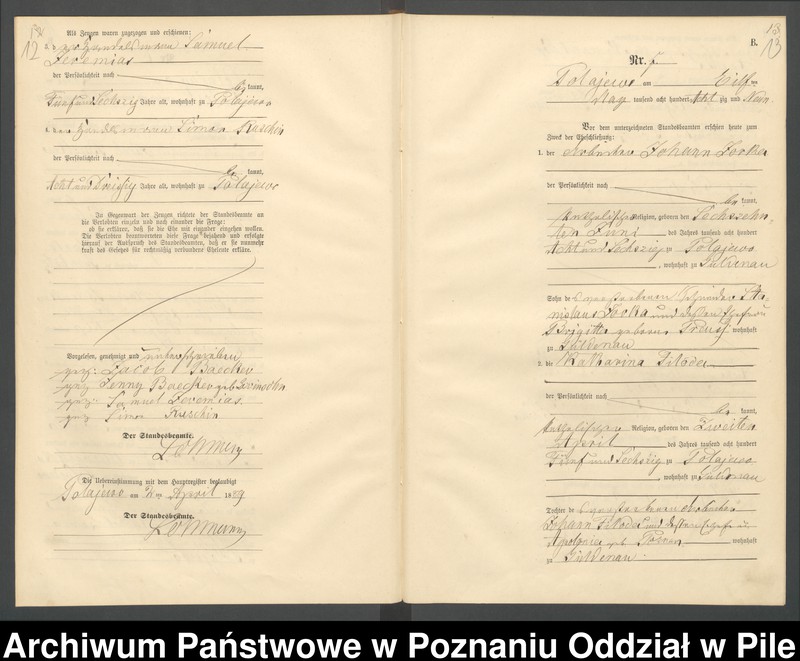 12
Als Zeugen waren zugezogen und erschienen:
3. Samuel
Jeremias
der Persönlichkeit nach
kannt,
Fünf und Sechszig Jahre alt, wohnhaft zu Polajewo
4. Simon Kaschin
der Persönlichkeit nach
kannt,
Acht und Dreißig Jahre alt, wohnhaft zu Polajewo
In Gegenwart der Zeugen richtete der Standesbeamte an
die Verlobten einzeln und nach einander die Frage:
ob sie erkläre, daß sie die Ehe mit einander eingehen wollen.
Die Verlobten beantworteten diese Frage bejahend und erfolgte
hierauf der Ausspruch des Standesbeamten, daß er sie nunmehr
kraft des Gesetzes für rechtmäßig verbundene Eheleute erkläre.
Vorgelesen, genehmigt und unterschrieben
gez: Jacob Baecker
gez Jenny Baecker geb
gez: Samuel Jeremias.
gez Simon Kaschin
Der Standesbeamte.
Lohmann
Die Uebereinstimmung mit dem Hauptregister beglaubigt
Polajewo am April 1889
Der Standesbeamte.
Lohmann
13
B.
Nr.
Polajewo am Eilf ten
May tausend acht hundert Acht zig und Neun
Vor dem unterzeichneten Standesbeamten erschien heute zum
Zweck der Eheschließung:
1. der Arbeiter Johann
der Persönlichkeit nach
kannt,
katholischer Religion, geboren den Sechszehn-
ten Juni des Jahres tausend acht hundert
Acht und Sechszig zu Polajewo
, wohnhaft zu Güldenau
Sohn des verstorbenen Schneider Sta-
nislaus und dessen Ehefrau
Brigitte geborene wohnhaft
zu Güldenau
2. die Katharina
der Persönlichkeit nach
kannt,
katholischer Religion, geboren den Zweiten
April des Jahres tausend acht hundert
Fünf und Sechszig zu Polajewo
, wohnhaft zu Güldenau
Tochter des verstorbenen Arbeiter
Johann und dessen Ehefrau
Apolonia geb wohnhaft
zu Güldenau
Archiwum Państwowe w Poznaniu Oddział w Pile